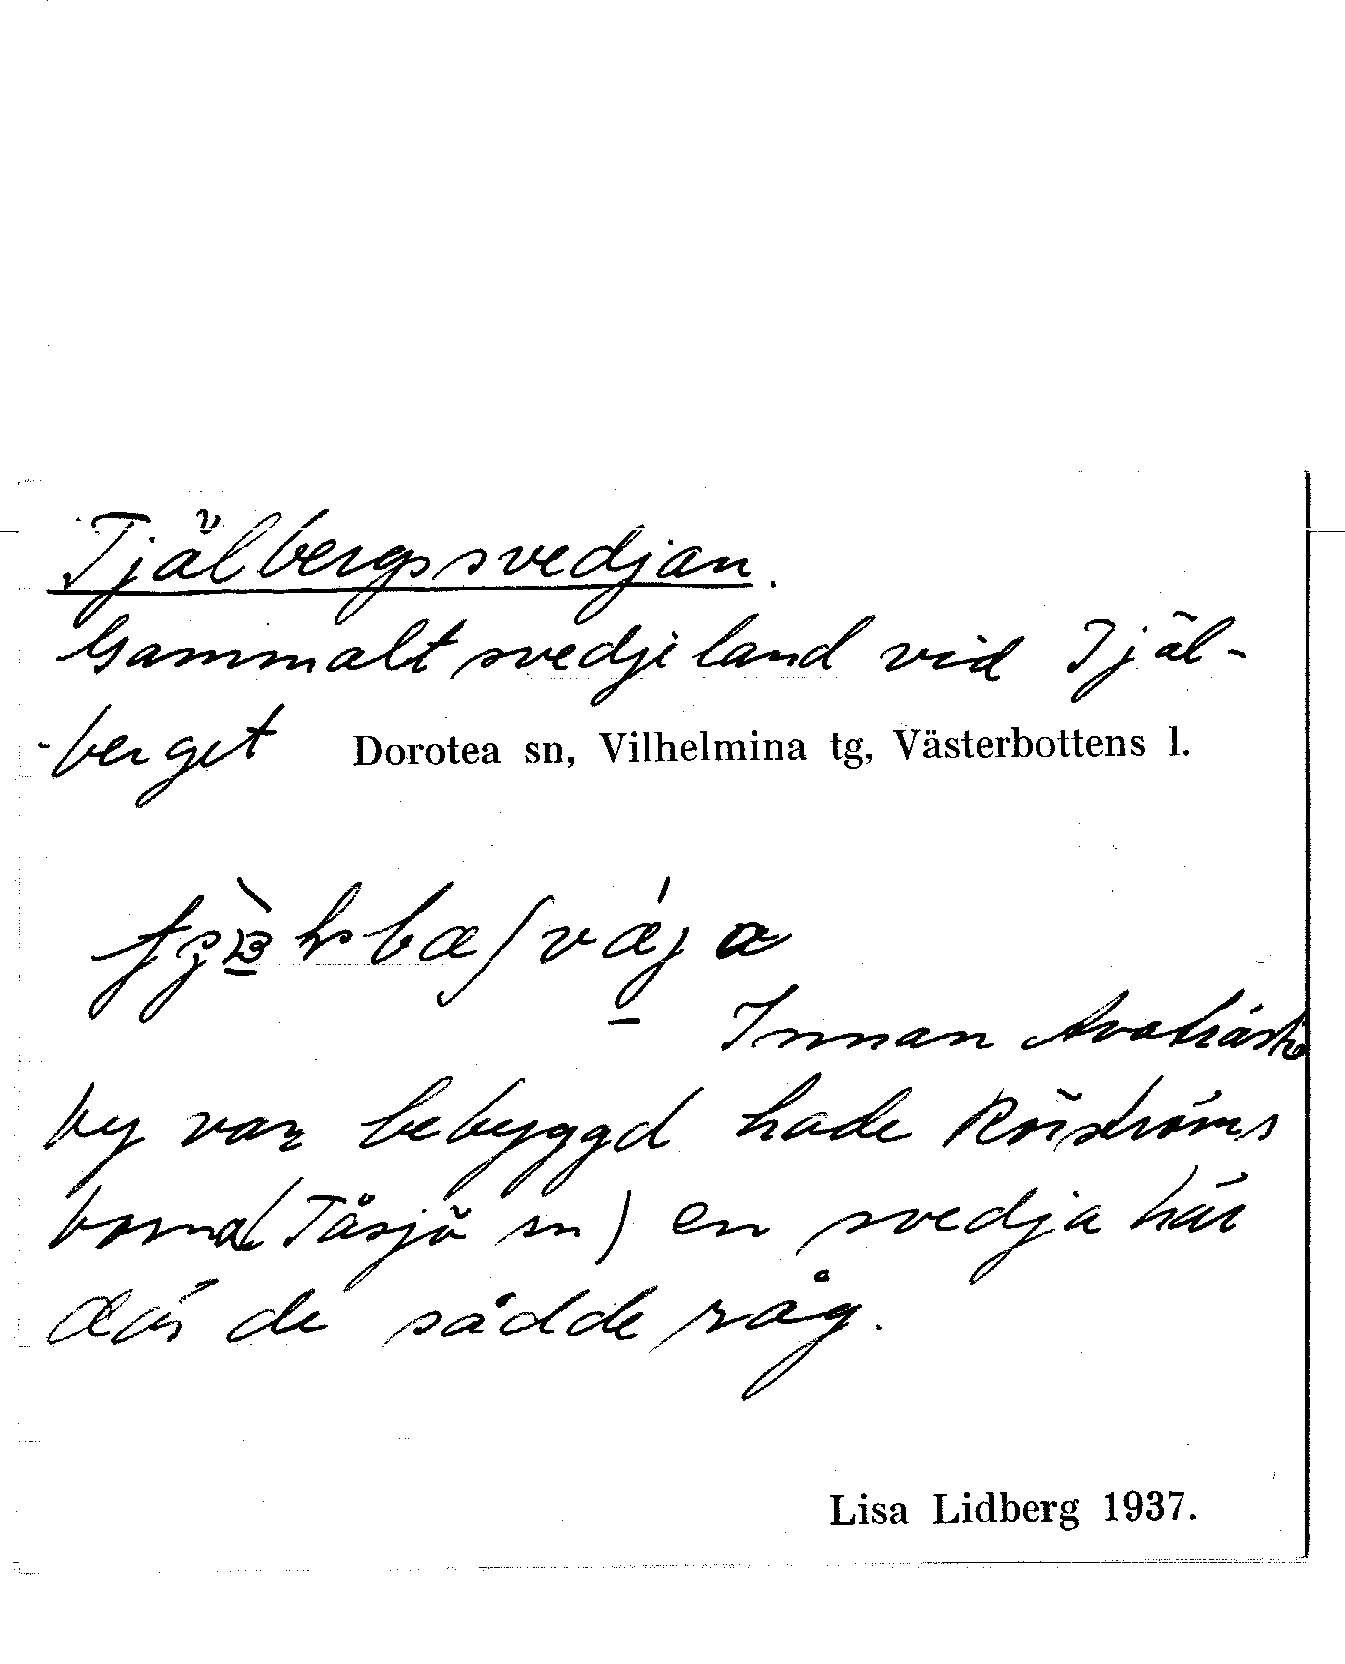 Tjälbergssvedjan.
Gammalt svedjeland vid Tjäl-
-berget Dorotea sn, Vilhelmina tg, Västerbottens l.
Innan Avaträsk
by var bebyggd hade Röströms
borna (Tåsjö sn) en svedja här
där de sådde råg.
Lisa Lidberg 1937.